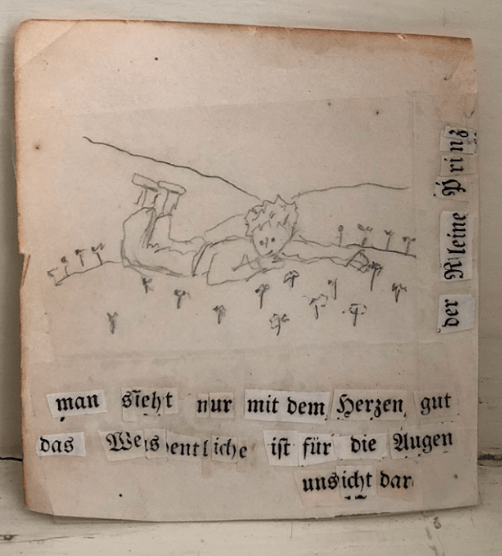 der Kleine Prinz
man sieht nur mit dem Herzen gut
das Wesentliche ist für die Augen
unsicht dar